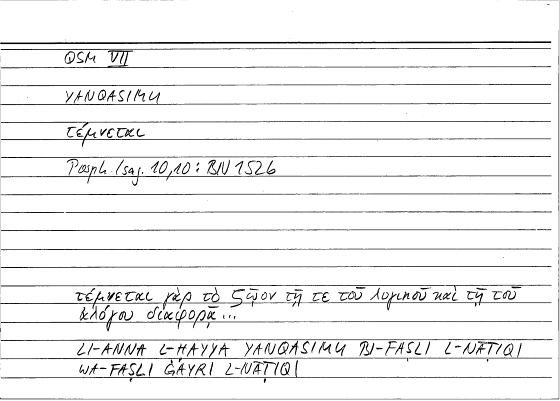 QSM VII
YANQASIMU
τέμνεται
Porph. Isag. 10,10 : BN 152b
τέμνεται γὰρ τὸ ζῷον τῇ τε τοῦ λογικοῦ καὶ τῇ τοῦ
ἀλόγου διαφορᾷ...
LI-ANNA L-ḤAYYA YANQASIMU BI-FAṢLI L-NĀṬIQI
WA-FAṢLI ĠAYRI L-NĀṬIQI